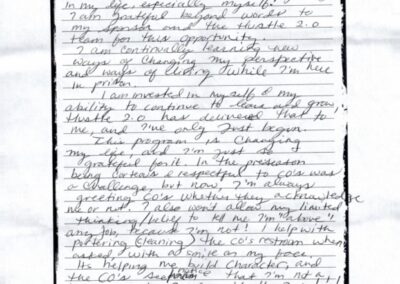 in my life, especially myself.
I am grateful beyond words to
my sponsor and the Hustle 2.0
team for this opportunity.
I am continually learning new
ways of changing my perspective
and ways of living while I'm here
in prison.
I am invested in myself & my
ability to continue to learn and grow,
Hustle 2.0 has delivered that to
me, and I've only just begun.
This program is changing
my life and I'm just so
grateful for it. In the preseason
being corteous & respectful to CO's was
a challenge, but now, I'm always
greeting CO's whether they acknowledge
me or not. I also won't allow my limited
thinking/belief to tell me I'm "above"
any job, because I'm not! I help with
portering (cleaning) the CO's restroom when
asked, with a smile on my face.
Its helping me build character, and
the CO's notice that I'm not a